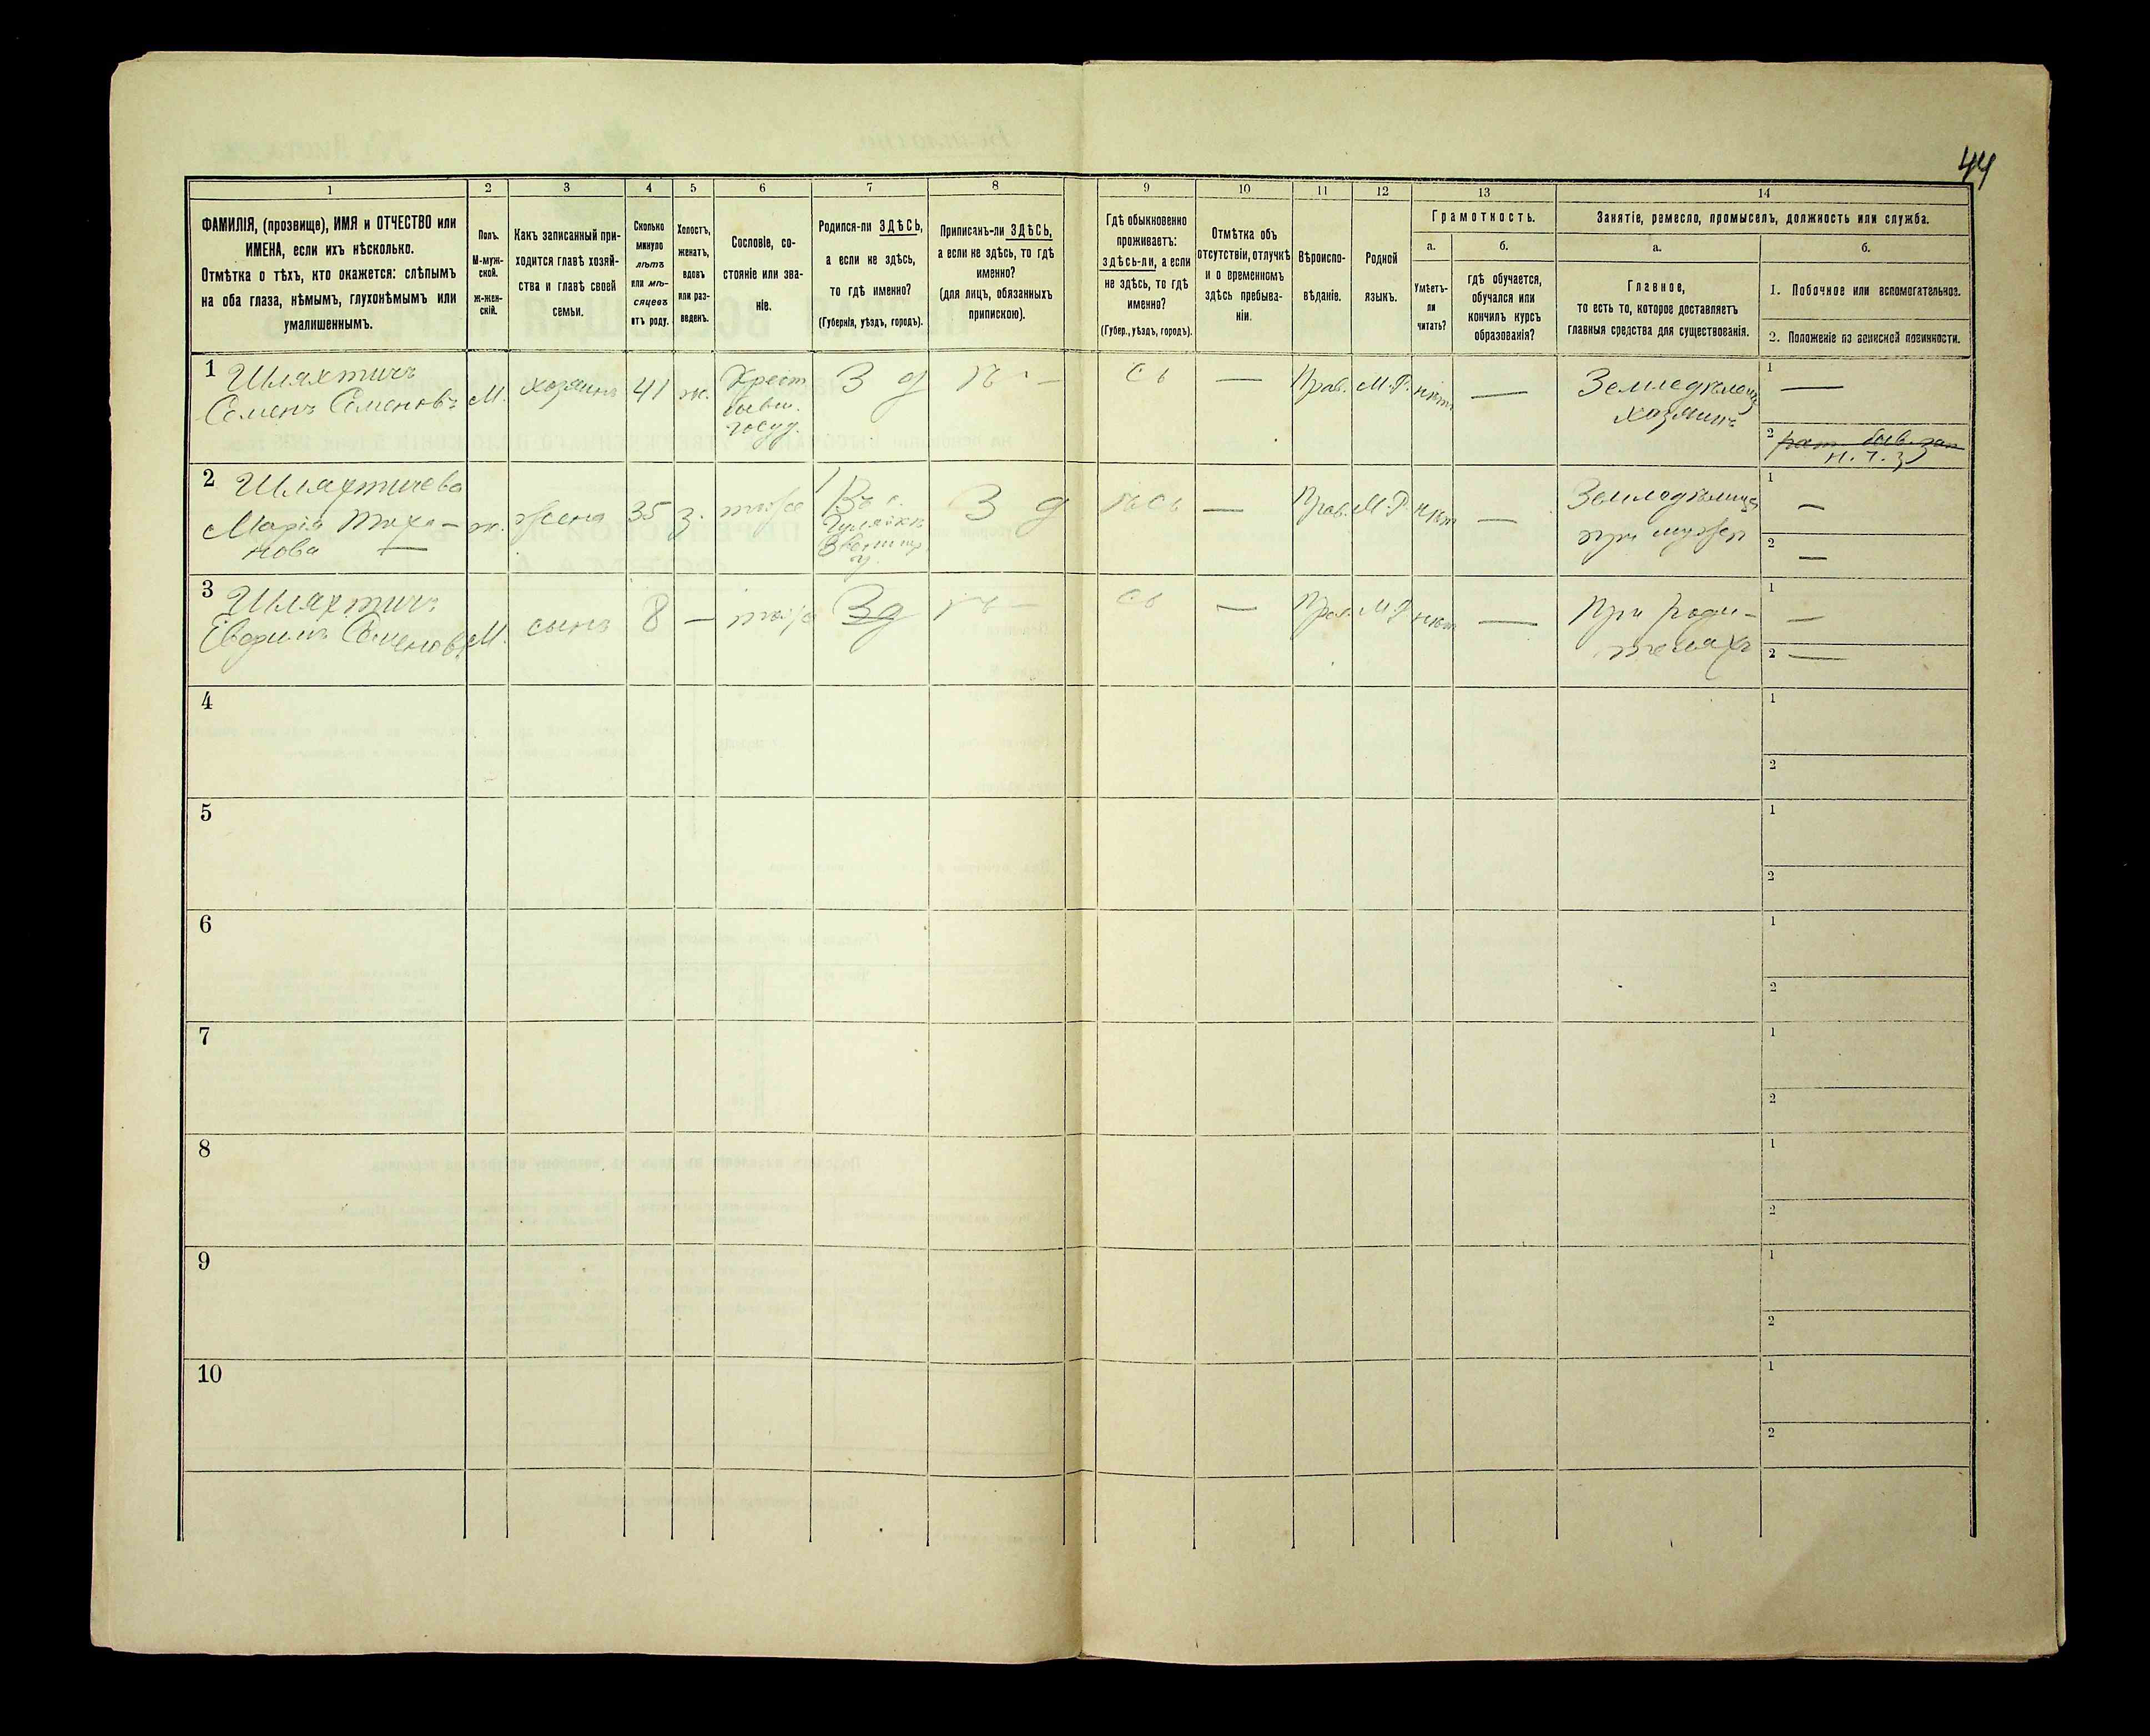 44
1 2 3 4 5 6 7 8 9 10 11 12 13 14
ФАМИЛІЯ, (прозвище), ИМЯ и ОТЧЕСТВО или
ИМЕНА, если ихъ нѣсколько.
Отмѣтка о тѣхъ, кто окажется: слѣпымъ
на оба глаза, нѣмымъ, глухонѣмымъ или
умалишеннымъ.
Полъ.
М-муж-
ской.
ж-жен-
скій.
Какъ записанный при-
ходится главѣ хозяй-
ства и главѣ своей
семьи.
Сколько
минуло
лѣтъ
или мѣ-
сяцевъ
отъ роду.
Холостъ,
женатъ,
вдовъ
или раз-
веденъ.
Сословіе, со-
стояніе или зва-
ніе.
Родился-ли ЗДѢСЬ,
а если не здѣсь,
то гдѣ именно?
(Губернія, уѣздъ, городъ).
Приписанъ-ли ЗДѢСЬ,
а если не здѣсь, то гдѣ
именно?
(для лицъ, обязанныхъ
припискою).
Гдѣ обыкновенно
проживаетъ:
здѣсь-ли, а если
не здѣсь, то гдѣ
именно?
(Губер., уѣздъ, городъ).
Отмѣтка объ
отсутствіи, отлучкѣ
и о временномъ
здѣсь пребыва-
ніи.
Вѣроиспо-
вѣданіе.
Родной
языкъ.
Грамотность.
а.
Умѣетъ-
ли
читать?
б.
гдѣ обучается,
обучался или
кончилъ курсъ
образованія?
Занятіе, ремесло, промыселъ, должность или служба.
а.
Главное,
то есть то, которое доставляетъ
главныя средства для существованія.
б.
1. Побочное или вспомогательное.
2. Положеніе по воинской повинности.
1 Шляхтичъ
Семенъ Семеновъ
М.
хозяинъ
41
ж.
Крест.
бывш.
госуд.
З д ѣ — сь
—
Прав.
М.Р.
нѣт
—
Земледѣлецъ
хозяинъ
1 —
2
2 Шляхтичева
Марія Тихо-
нова —
ж.
жена
35
з.
тоже
Въ с.
Звениг.
у.
З д ѣсь
—
Прав.
М.Р.
нѣт
—
Земледѣлица
при мужѣ
1 —
2 —
3 Шляхтичъ
Семеновъ
М.
сынъ
8
—
тоже
Зд ѣ — сь
—
Прав.
М.Р
нѣт
—
При роди-
теляхъ
1 —
2 —
4
1
2
5
1
2
6
1
2
7
1
2
8
1
2
9
1
2
10
1
2